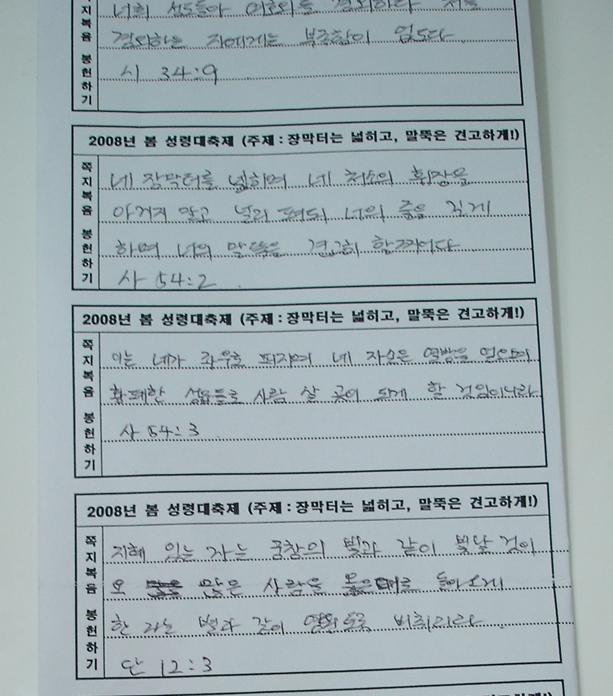 너희 성도들아 여호와를 경외하라 저를
경외하는 자에게는 부족함이 없도다
시 34:9
쪽지복음 봉헌하기
2008년 봄 성령대축제 (주제 : 장막터는 넓히고, 말뚝은 견고하게!)
네 장막터를 넓히며 네 처소의 휘장을
아끼지 말고 널리 펴되 너의 줄을 길게
하며 너의 말뚝을 견고히 할찌어다
사 54:2
쪽지복음 봉헌하기
2008년 봄 성령대축제 (주제 : 장막터는 넓히고, 말뚝은 견고하게!)
이는 네가 좌우로 퍼지며 네 자손은 열방을 얻으며
황폐한 성읍들로 사람 살 곳이 되게 할 것임이니라
사 54:3
쪽지복음 봉헌하기
2008년 봄 성령대축제 (주제 : 장막터는 넓히고, 말뚝은 견고하게!)
지혜 있는 자는 궁창의 빛과 같이 빛날 것이
요 많은 사람을 옳은데로 돌아오게
한 자는 별과 같이 영원토록 비취리라
단 12:3
쪽지복음 봉헌하기